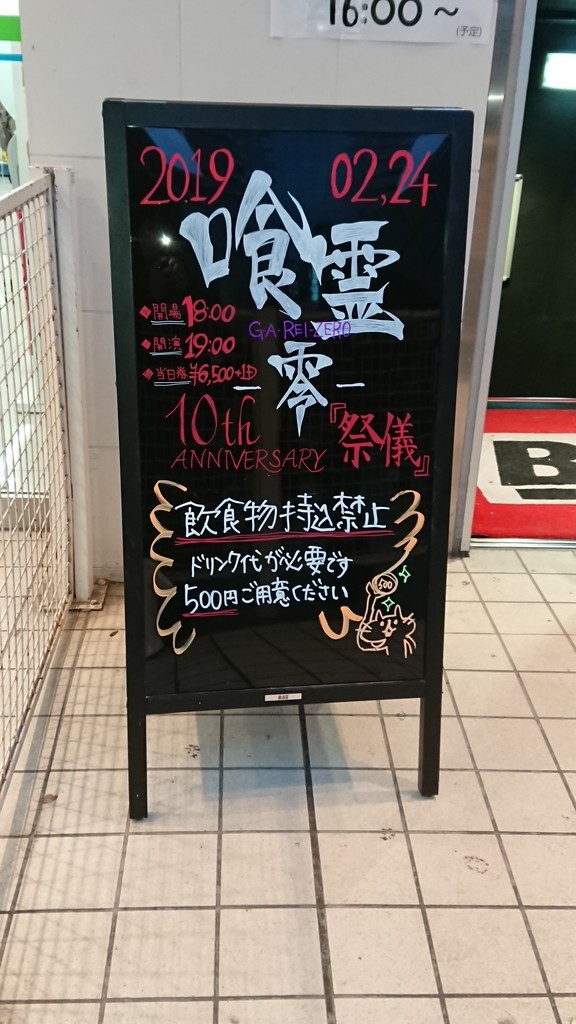 16:00～
(予定)
2019 02,24
喰霊
GA-REI-ZERO
－零－
◆開場 18:00
◆開演 19:00
◆当日券 ¥6,500+1D
10th
ANNIVERSARY
『祭儀』
飲食物持込禁止
ドリンク代が必要です
500円ご用意ください
500
B